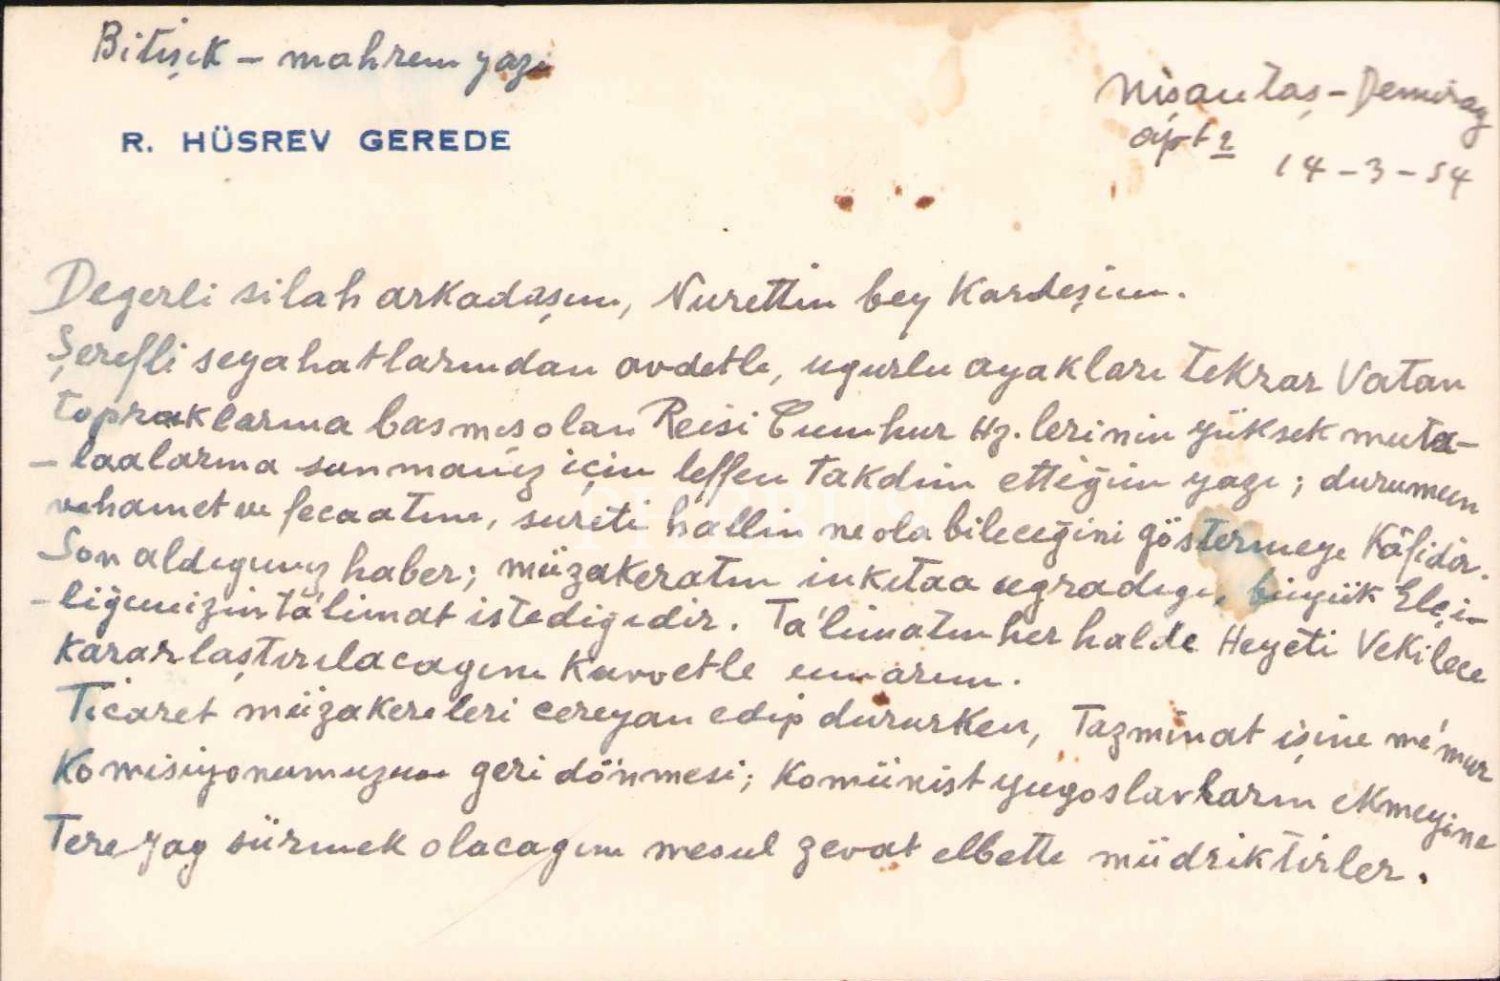 Bitişik – mahrem yazı
R. HÜSREV GEREDE
Nişantaş – Demirağ
apt 2
14 – 3 – 54
Degerli silah arkadaşım, Nurettin bey Kardeşim.
Şerefli seyahatlarından avdetle, ugurlu ayakları tekrar Vatan
topraklarına basmış olan Reisi Cumhur Hz. lerinin yüksek muta–
– laalarına sunmanız için leffen takdim ettiğim yazı ; durumun
vehamet ve fecaatını, sureti hallin ne olabileceğini göstermeye Kâfidir.
Son aldıgımız haber ; müzakeratın inkıtaa ugradıgı, büyük Elçi–
– liğimizin ta'limat istedigidir. Ta'limatın her halde Heyeti Vekilece
kararlaştırılacagını kuvvetle umarım.
Ticaret müzakereleri cereyan edip dururken, Tazminat işine me'mur
Komisiyonumuzun geri dönmesi ; Komünist yugoslavların ekmeyine
Tereyag sürmek olacagını mesul zevat elbette müdriktirler.